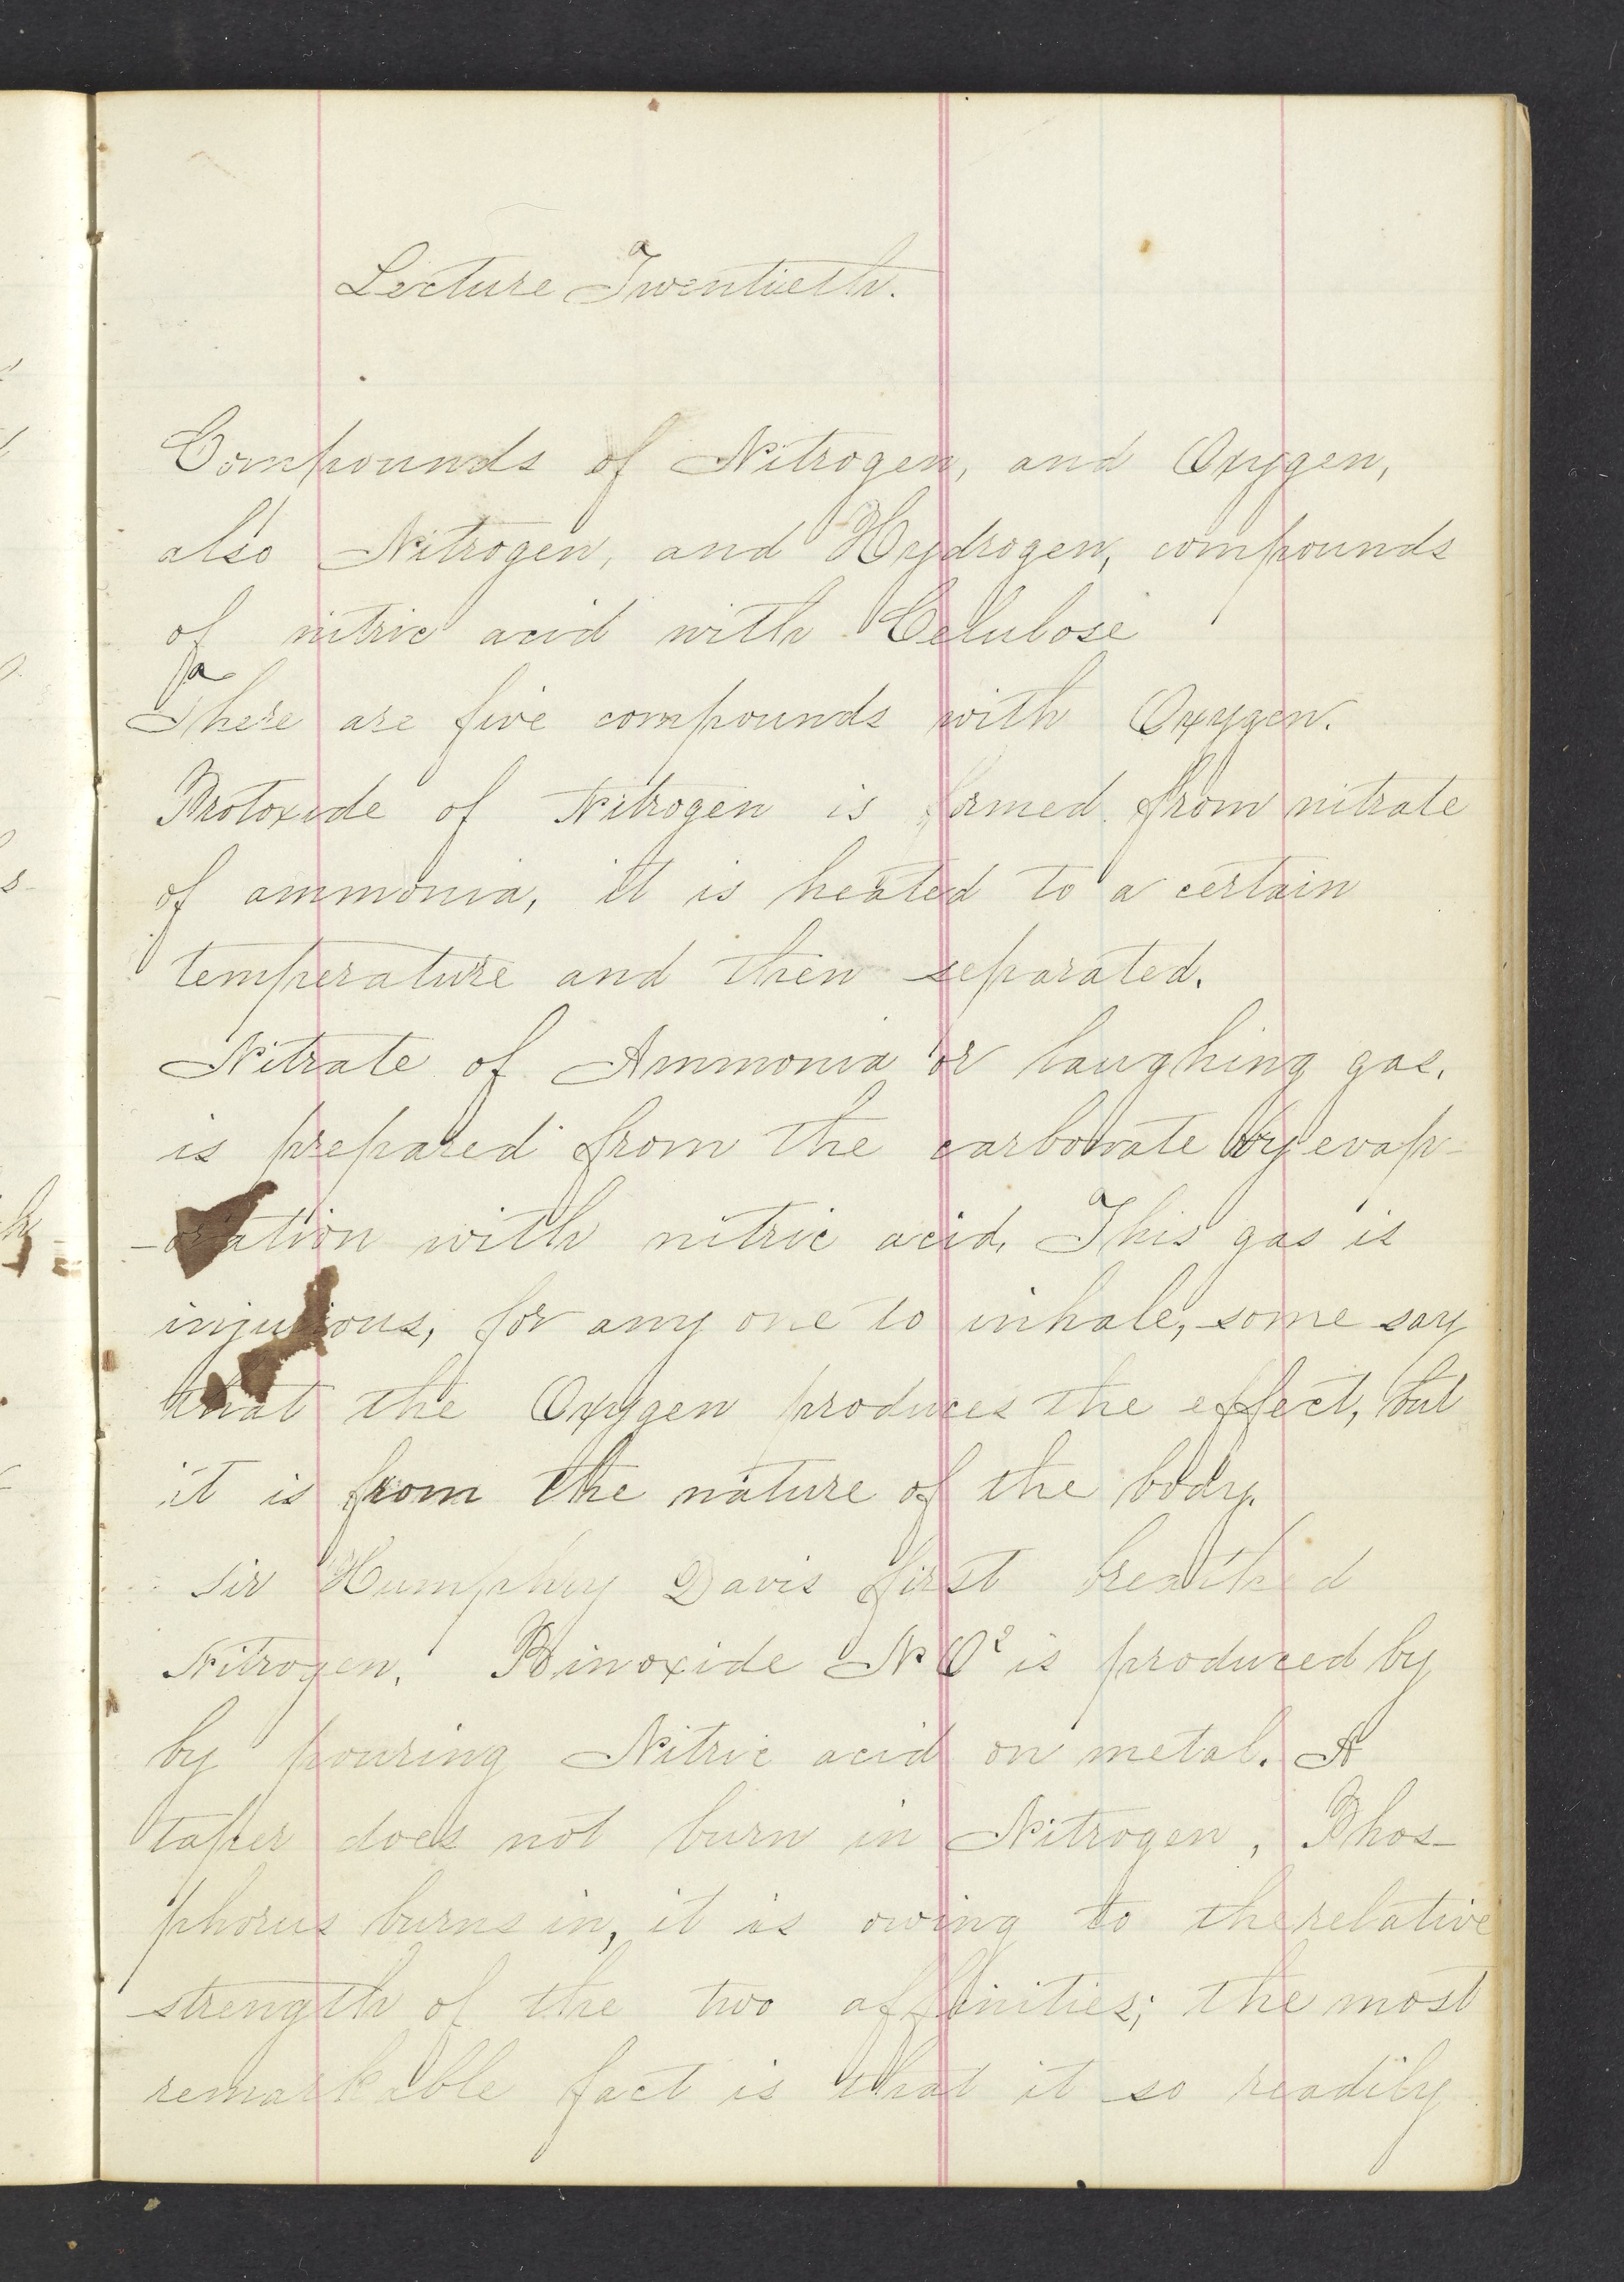 Lecture Twentieth.
Compounds of Nitrogen, and Oxygen,
also Nitrogen, and Hydrogen, compounds
of nitric acid with Celulose
There are five compounds with Oxygen.
Protoxide of Nitrogen is formed from nitrate
of ammonia, it is heated to a certain
temperature and then separated.
Nitrate of Ammonia or laughing gas.
is prepared from the carbonate by evap-
-oration with nitric acid. This gas is
injurious, for any one to inhale, some say
that the Oxygen produces the effect, but
it is from the nature of the body.
Sir Humphry Davis first breathed
Nitrogen. Binoxide NO² is produced by
by pouring Nitric acid on metal. A
taper does not burn in Nitrogen, Phos-
phorus burns in, it is owing to the relative
strength of the two affinities; the most
remarkable fact is that it so readily